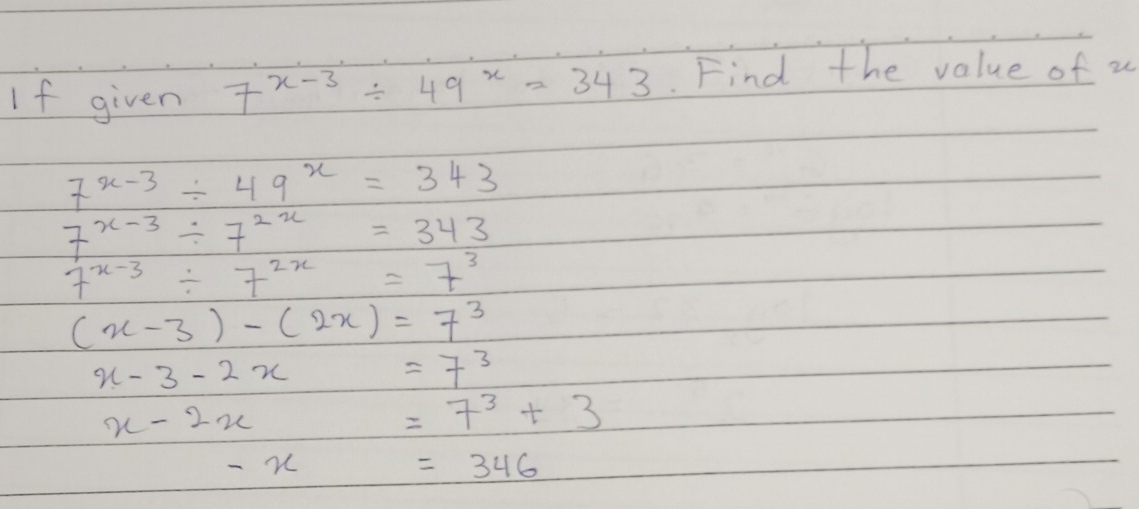 If given 7^(x-3) ÷ 49^x = 343. Find the value of x
7^(x-3) ÷ 49^x = 343
7^(x-3) ÷ 7^(2x) = 343
7^(x-3) ÷ 7^(2x) = 7^3
(x-3)-(2x) = 7^3
x-3-2x = 7^3
x-2x = 7^3 + 3
-x = 346